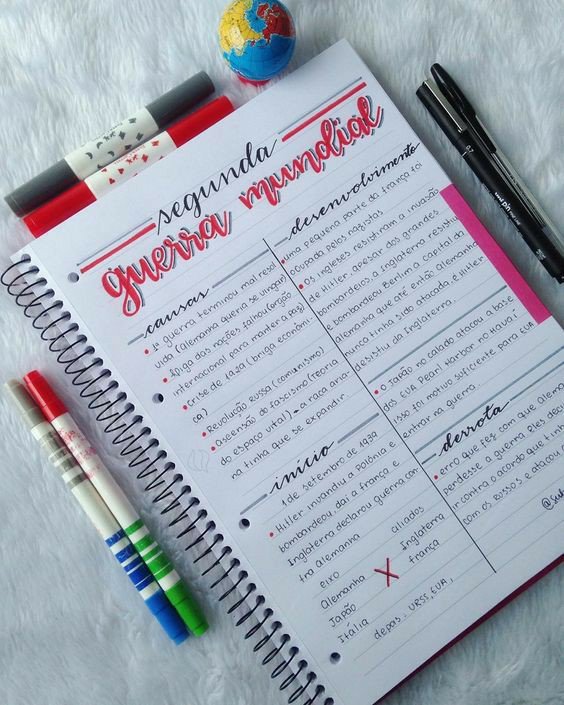 segunda
guerra mundial
causas
• 1ª guerra terminou mal resol
vida (Alemanha queria se vingar)
• liga das nações falhou (órgão
internacional para manter a paz)
• Crise de 1929 (briga econômi
ca)
• Revolução Russa (comunismo)
• Ascensão do fascismo (teoria
do espaço vital) - a raça aria-
na tinha que se expandir.
início
1 de setembro de 1939
• Hitler invandiu a Polônia e
bombardeou, daí a frança e
Inglaterra declarou guerra con-
tra Alemanha
eixo
aliados
Alemanha X Inglaterra
Japão
frança
Itália
depois: URSS, EUA,
desenvolvimento
• uma pequena parte da frança foi
ocupada pelos nazistas
• Os ingleses resistiram a invasão
de Hitler, apesar dos grandes
bombardeios a Inglaterra resistiu
e bombardeou Berlim a Capital da
Alemanha que até então Alemanha
nunca tinha sido atacada, e Hitler
desistiu da Inglaterra.
• O Japão no calado atacou a base
dos EUA Pearl Harbor no Havaí
isso foi motivo suficiente para EUA
entrar na guerra.
derrota
• erro que fez com que Alema
perdesse a guerra. Eles deci
incontra o acordo que tinh
com os Russos e atacou a